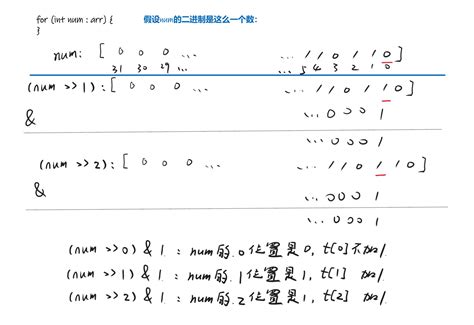 for (int num : arr) {
}
假设num的二进制是这么一个数：
num: [ 0 0 0 ... ... 1 1 0 1 1 0 ]
31 30 29 ... 5 4 3 2 1 0
(num >> 1) : [ 0 0 0 ... ... 1 1 0 1 1 0 ]
& ... 0 0 0 1
... 0 0 0 1
(num >> 2) : [ 0 0 0 ... ... 1 1 0 1 1 0 ]
& ... 0 0 0 1
... 0 0 0 1
(num >> 0) & 1 : num的 0 位置是 0, t[0] 不加1
(num >> 1) & 1 : num的 1 位置是 1, t[1] 加1
(num >> 2) & 1 : num的 2 位置是 1, t[2] 加1